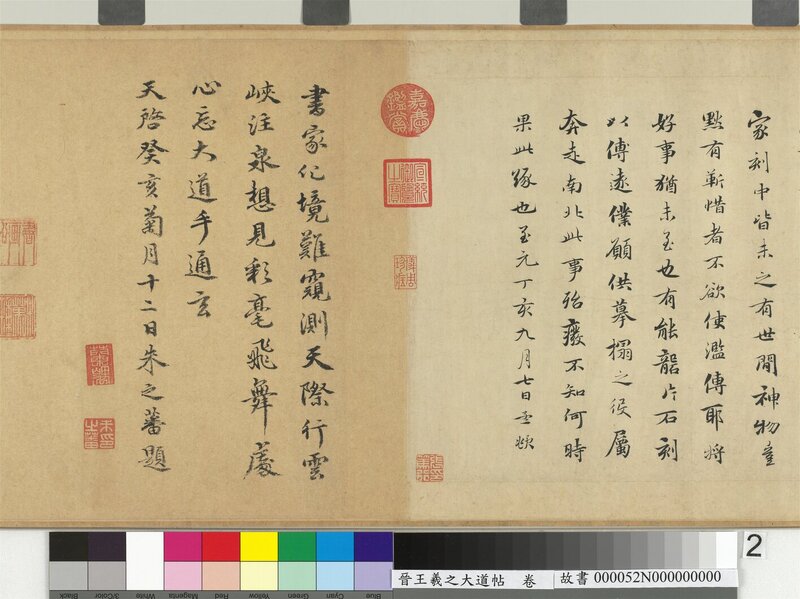 家刻中皆未之有世間神物豈
黙有靳惜者不欲使濫傳耶將
好事猶未至也有能龍片石刻
以傳遠僕願供摹搨之役屬
奔走南北此事殆癈不知何時
果此緣也至元丁亥九月七日孟頫
嘉慶鑑賞
宣統御覽之寶
書家化境難窺測天際行雲
峽注泉想見彩毫飛舞處
心忘大道手通玄
天啓癸亥菊月十二日朱之蕃題
朱印之蕃
Black
3/Color
White
Magenta
Red
Yellow
Green
Cyan
Blue
2
晉王羲之大道帖 卷
故書 000052N000000000